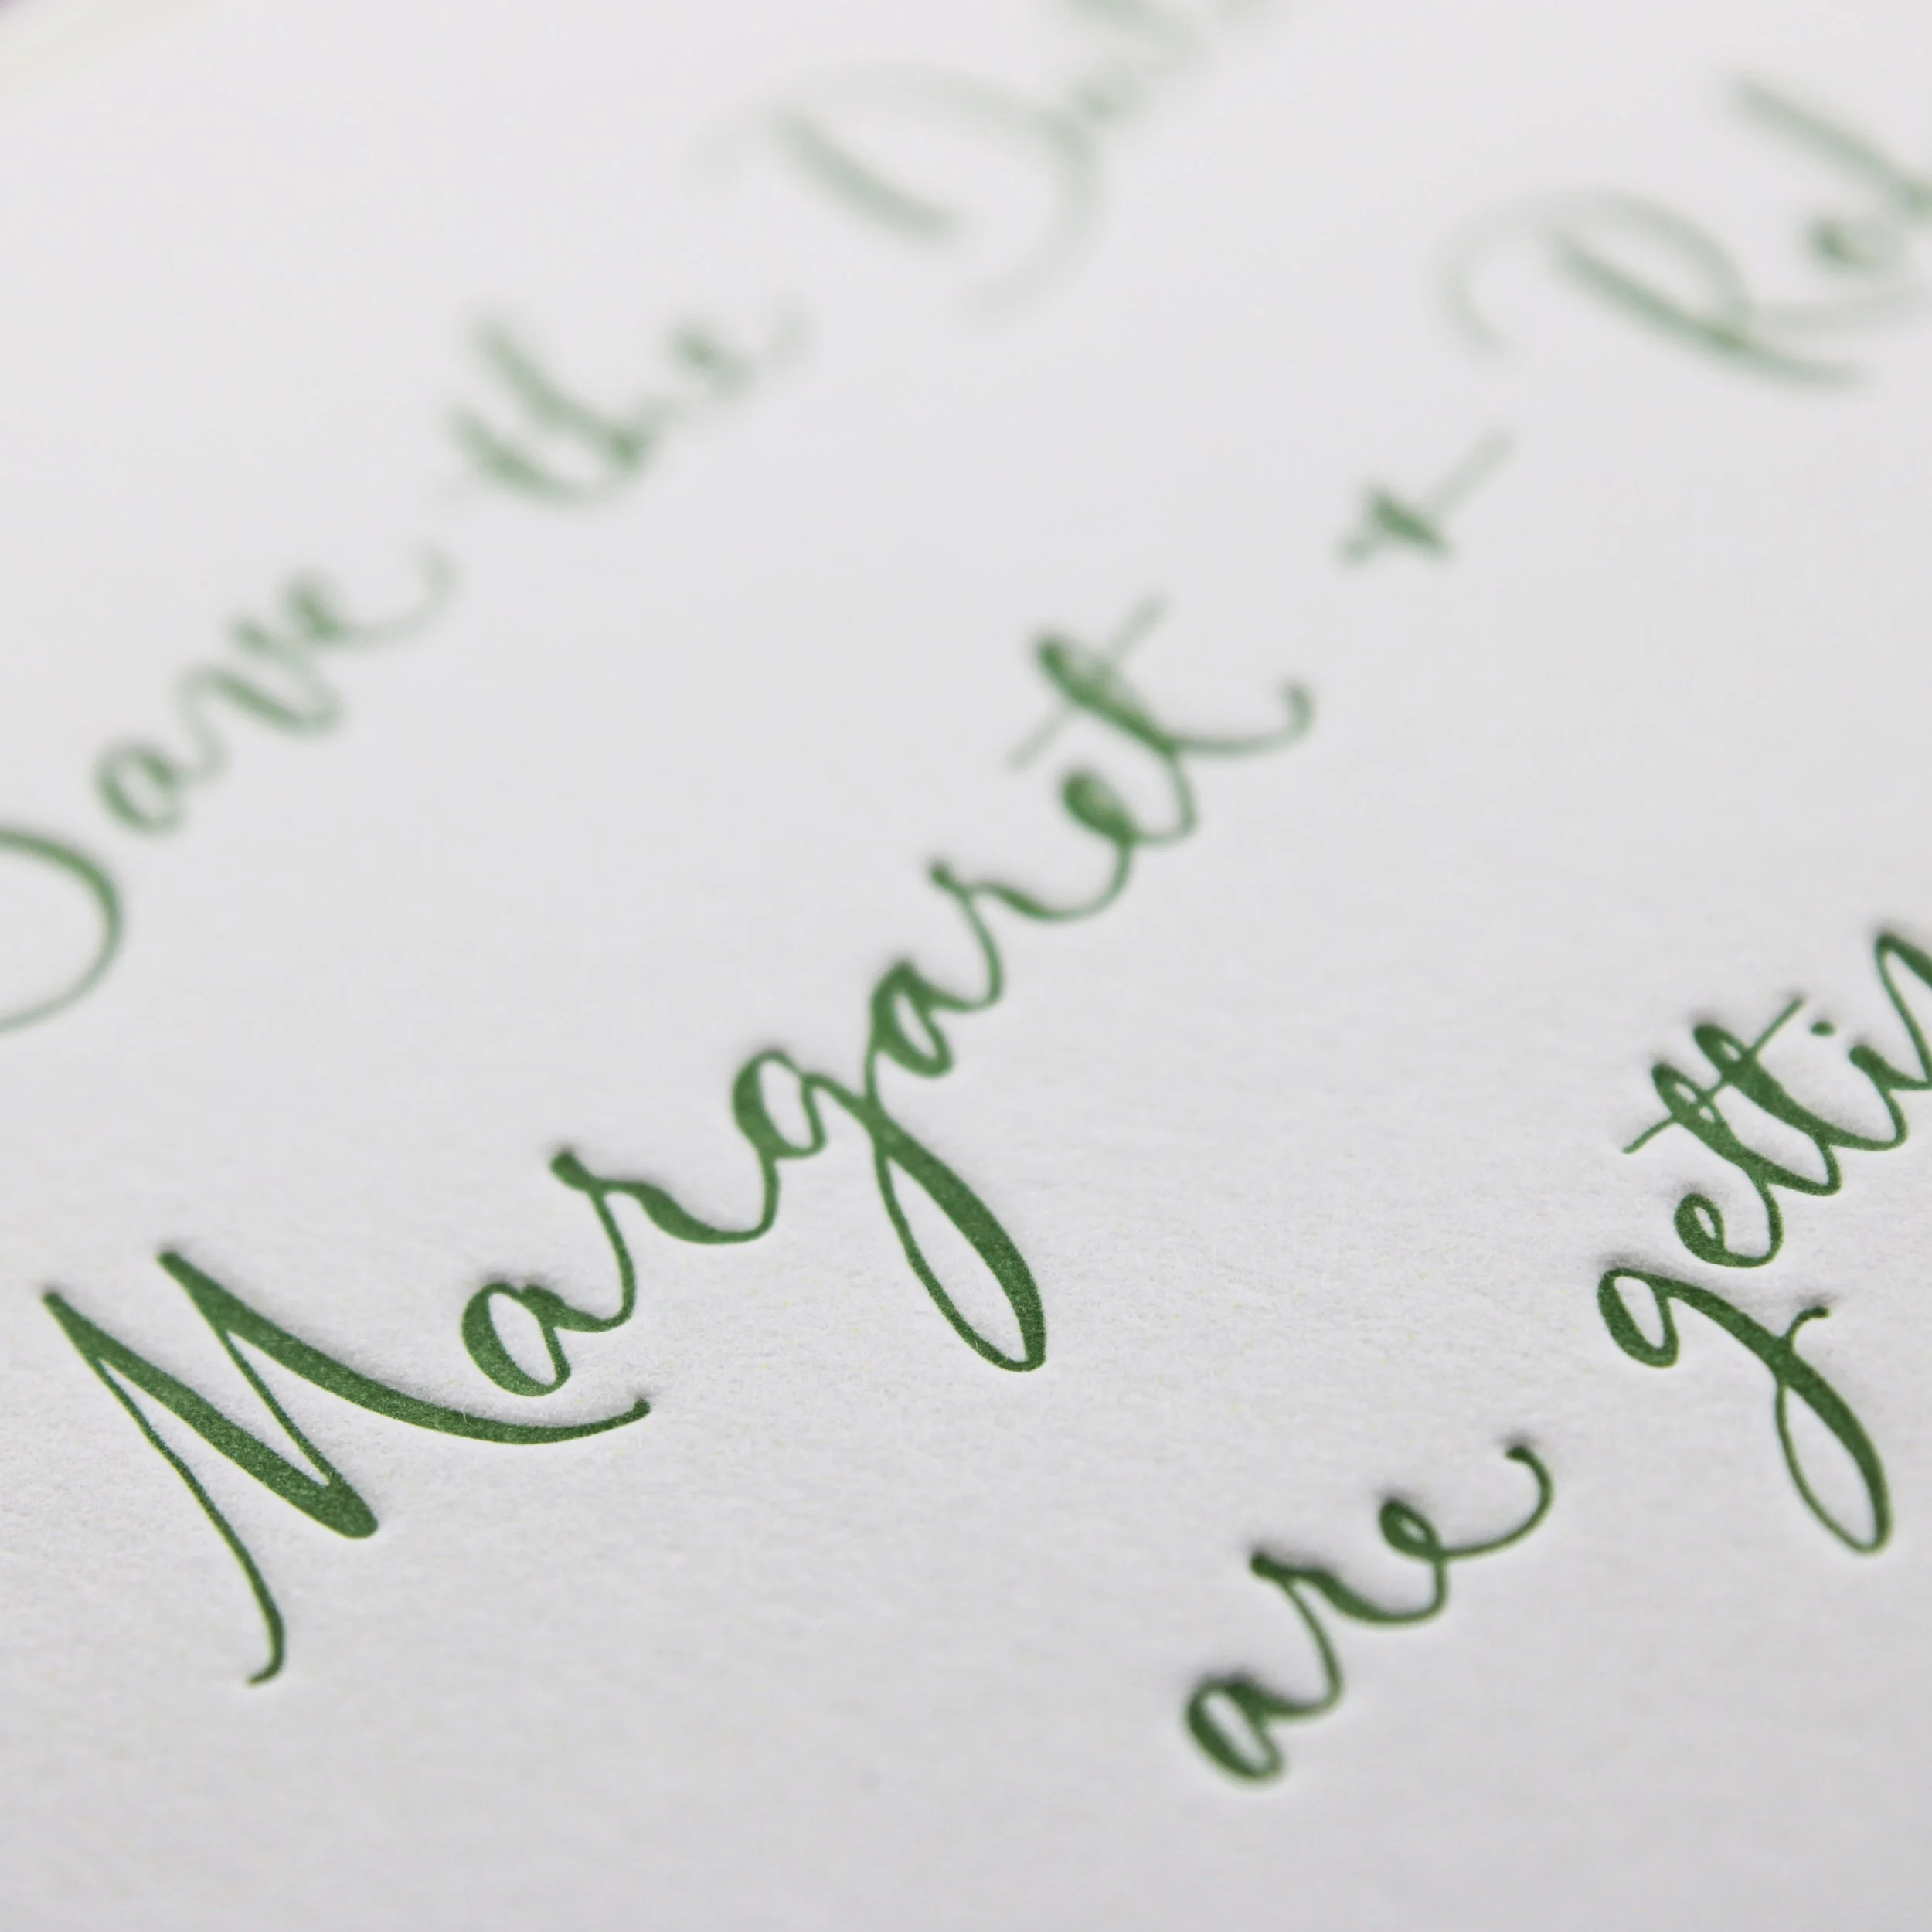 Save the Dat
Margaret + Rob
are gettin